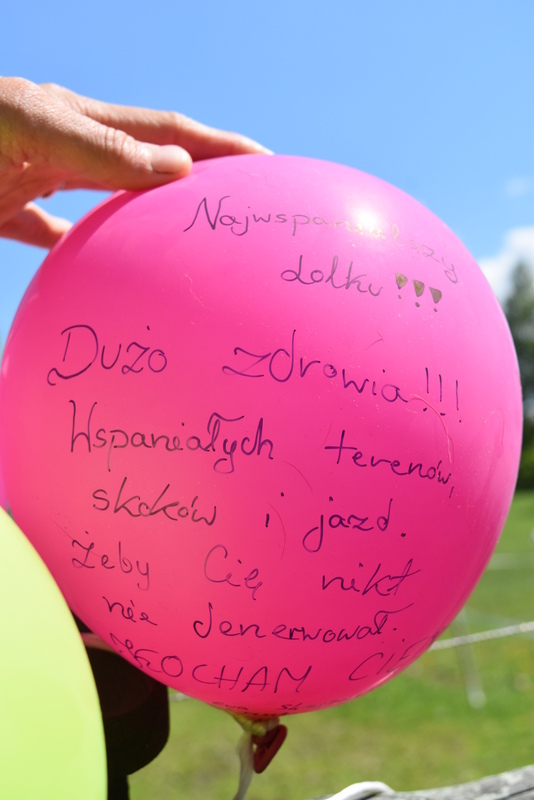 Najwspanialszy
Lolku !!!
Dużo zdrowia!!!
Wspaniałych terenów,
skoków i jazd.
Żeby Cię nikt
nie denerwował.
KOCHAM CIĘ